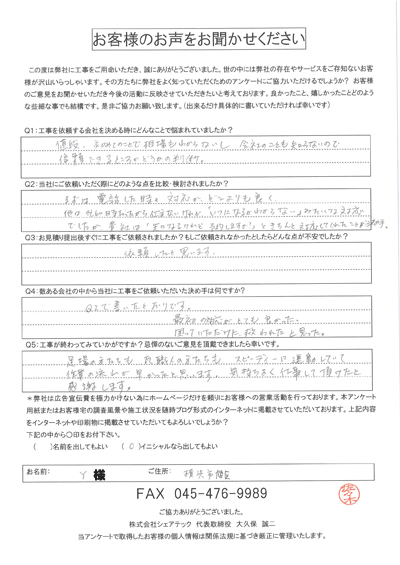 お客様のお声をお聞かせください
この度は弊社に工事をご用命いただき、誠にありがとうございました。世の中には弊社の存在やサービスをご存知ないお客
様が沢山いらっしゃいます。その方たちに弊社をよく知っていただくためのアンケートにご協力いただけるでしょうか？ お客様
のご意見をお聞かせいただき今後の活動に反映させていただきたいと考えております。良かったこと、嬉しかったことどのよう
な些細な事でも結構です。是非ご協力お願い致します。（出来るだけ具体的に書いていただければ幸いです）
Q1：工事を依頼する会社を決める時にどんなことで悩まれていましたか？
値段、
信頼できるところかどうかの判断。
Q2：当社にご依頼いただく際にどのような点を比較・検討されましたか？
まずは電話した時の対応が、どこよりも良く、
Q3：お見積り提出後すぐに工事をご依頼されましたか？もしご依頼されなかったとしたらどんな点が不安でしたか？
依頼したと思います。
Q4：数ある会社の中から当社に工事をご依頼いただいた決め手は何ですか？
Q2で書いたとおりです。
最初の対応がとても良かった。
困っていただけに救われたと思った。
Q5：工事が終わってみていかがですか？忌憚のないご意見を頂戴できましたら幸いです。
足場の方たちも、お職人の方たちも、スピーディーに
作業の流れが早かったと思います。気持ちよく仕事して頂けたと
感謝します。
＊弊社は広告宣伝費を極力かけない為にホームページだけを頼りにお客様への営業活動を行っております。本アンケート
用紙またはお客様宅の調査風景や施工状況を随時ブログ形式のインターネットに掲載させていただいております。上記内容
をインターネットや印刷物に掲載させていただいてもよろしいでしょうか？
下記の中から〇印をお付下さい。
（　）名前を出してもよい　（〇）イニシャルなら出してもよい
お名前： Y 様 ご住所： 横浜市
FAX 045-476-9989
ご協力ありがとうございました。
株式会社シェアテック 代表取締役 大久保 誠二
当アンケートで取得したお客様の個人情報は関係法規に基づき厳正に管理いたします。